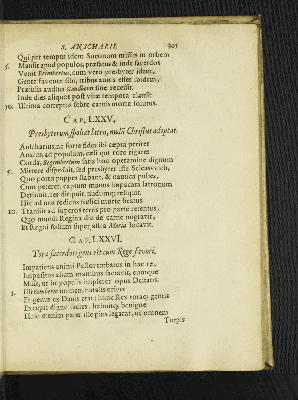 S. ANSCHARII. 205
Qui per tempus idem Sueonum missus in orbem
5. Mansit apud populos, præfatus & inde sacerdos
Venit Erimbertus, cum vero presbyter idem,
Gente favente sibi, tribus annis esset ibidem,
Præsulis auditu Gausberti fine recessit.
Inde dies aliquot post vitæ tempora clausit
10. Ultima correptus febre carnis morte solutus.
CAP. LXXV.
Presbyterum spoliat latro, nudū Christus adoptat.
Anscharius, ne forte fides ibi cœpta periret
Ansfrid, ad populum, qui
Corda, Regimbertum satis hoc operamine dignum
5. Mittere disposuit, sed presbyter iste
Quo portu puppes stabant, & nautica pubes,
Cum peteret, captum manus impacata latronum
Detinuit, res diripuit, nudumque reliquit
Hic ad nos rediens tactus morte
10. Transiit ad superos terris pro parte retentus,
Quo mundi Regina die de carne migravit,
Et Regni solium super astra Maria locavit.
CAP. LXXVI.
Tota sacerdoti gens est cum Rege favori.
Impatiens animi Pastor torbatus in hac re,
Impositas alium manibus sacravit, eumque
Misit, ut in populis impleret opus Deitatis.
Illi nomen, natalis
5. Et genus ex Danis erat; hunc Rex totaque gentis
Excepit digne facies, habuitque benigne
Huic etenim pater ille pius legatat, ut omnem
Turpis